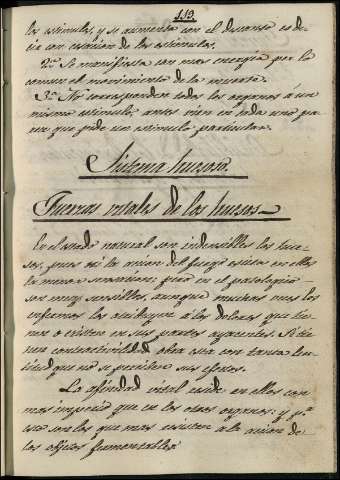 113.
los estimulos, y se aumenta con el descanso es de-
cir con cesacion de los estimulos.
2.º Se manifiesta con mas energia por lo
comun el movimiento de la muerte.
3.º No corresponden todos los organos á un
mismo estimulo, antes bien en cada uno pa-
rece que pide un estimulo particular.
Sistema huesoso.
Fuerzas vitales de los huesos.
En el estado natural son insensibles los hue-
sos, pues ni la accion del fuego escita en ellos
la menor sensacion; pero en el patologico
son muy sensibles, aunque muchas veces los
enfermos los atribuyen á los dolores que tie-
nen ó existen en sus partes ayacentes. Si tie-
nen contractilidad obra esta con tanta len-
titud que no se perciben sus efectos.
La afinidad vital reside en ellos con
mas imperio que en los otros organos: y p.r
eso son los que mas resisten a la accion de
los objetos fermentables.